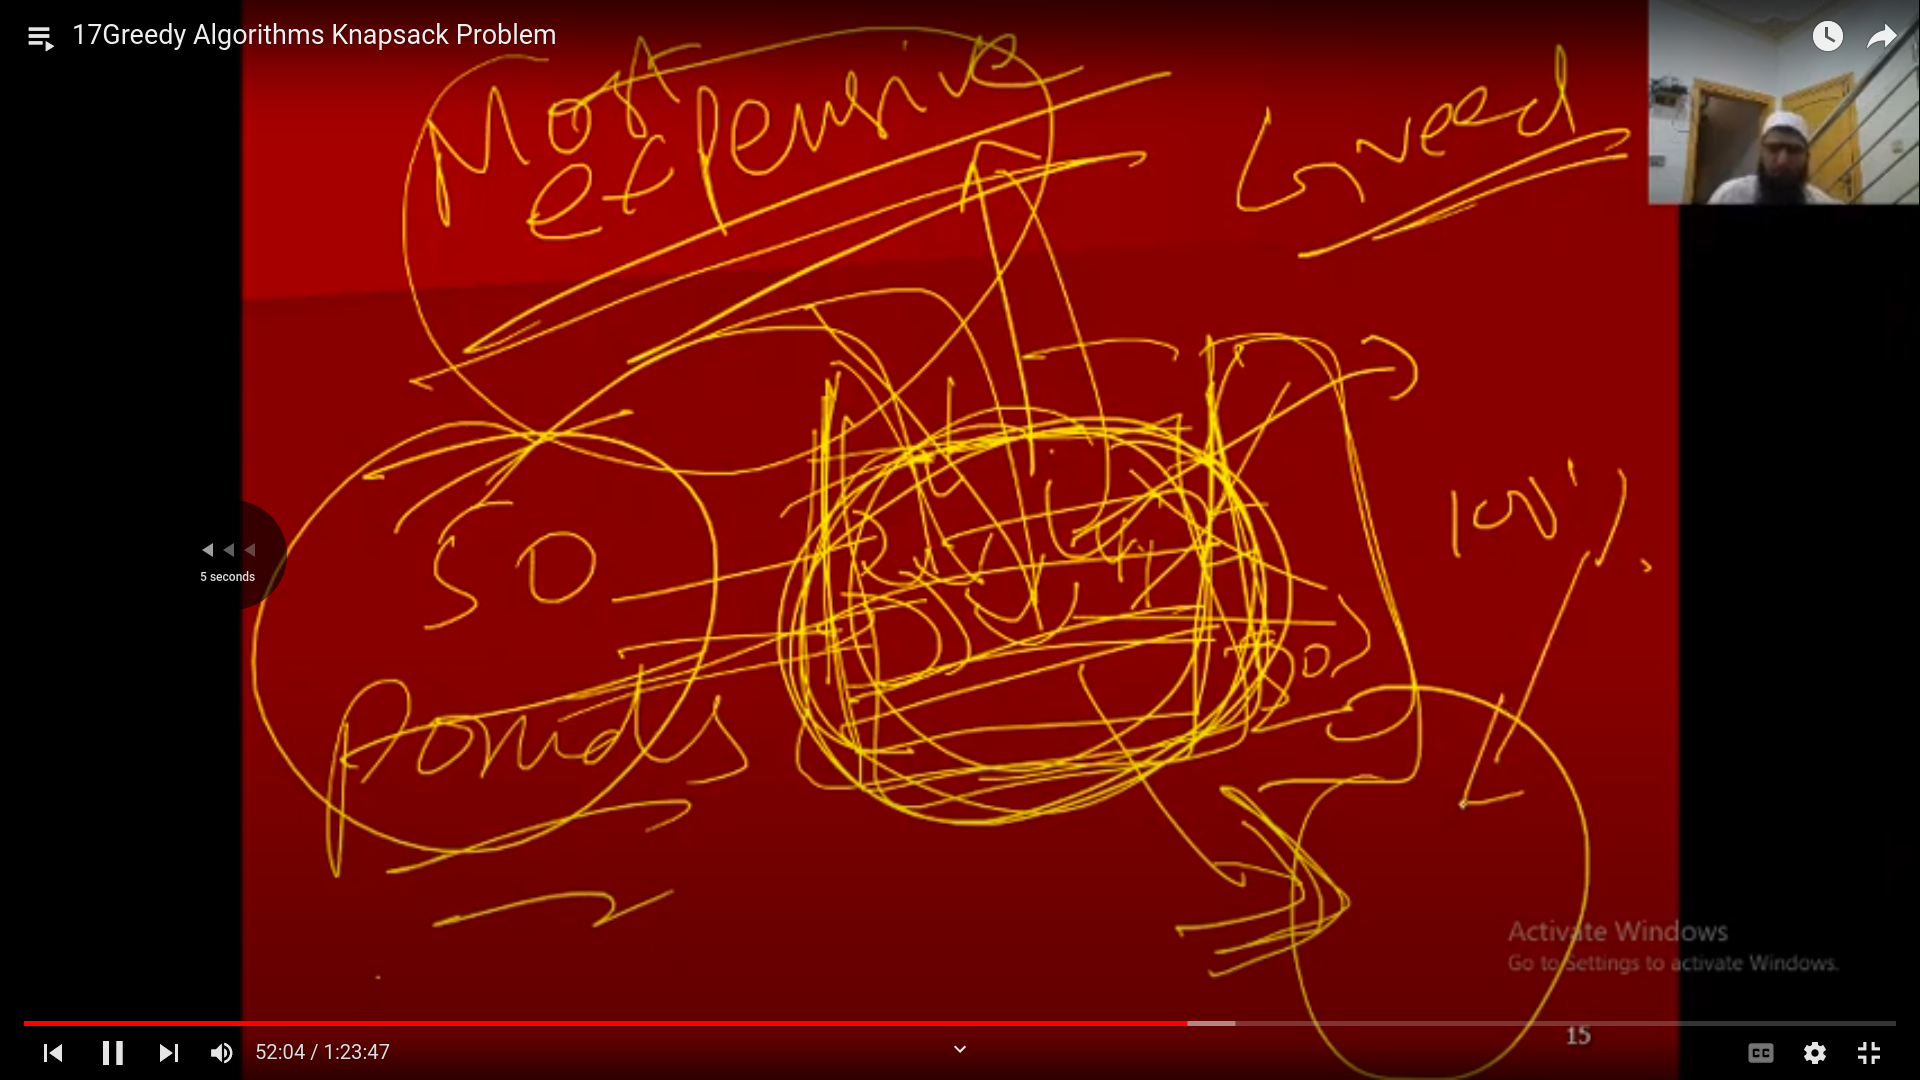 17Greedy Algorithms Knapsack Problem
Most
expensive
Greed
50
Pounds
100%
5 seconds
Activate Windows
Go to Settings to activate Windows.
15
52:04 / 1:23:47
CC